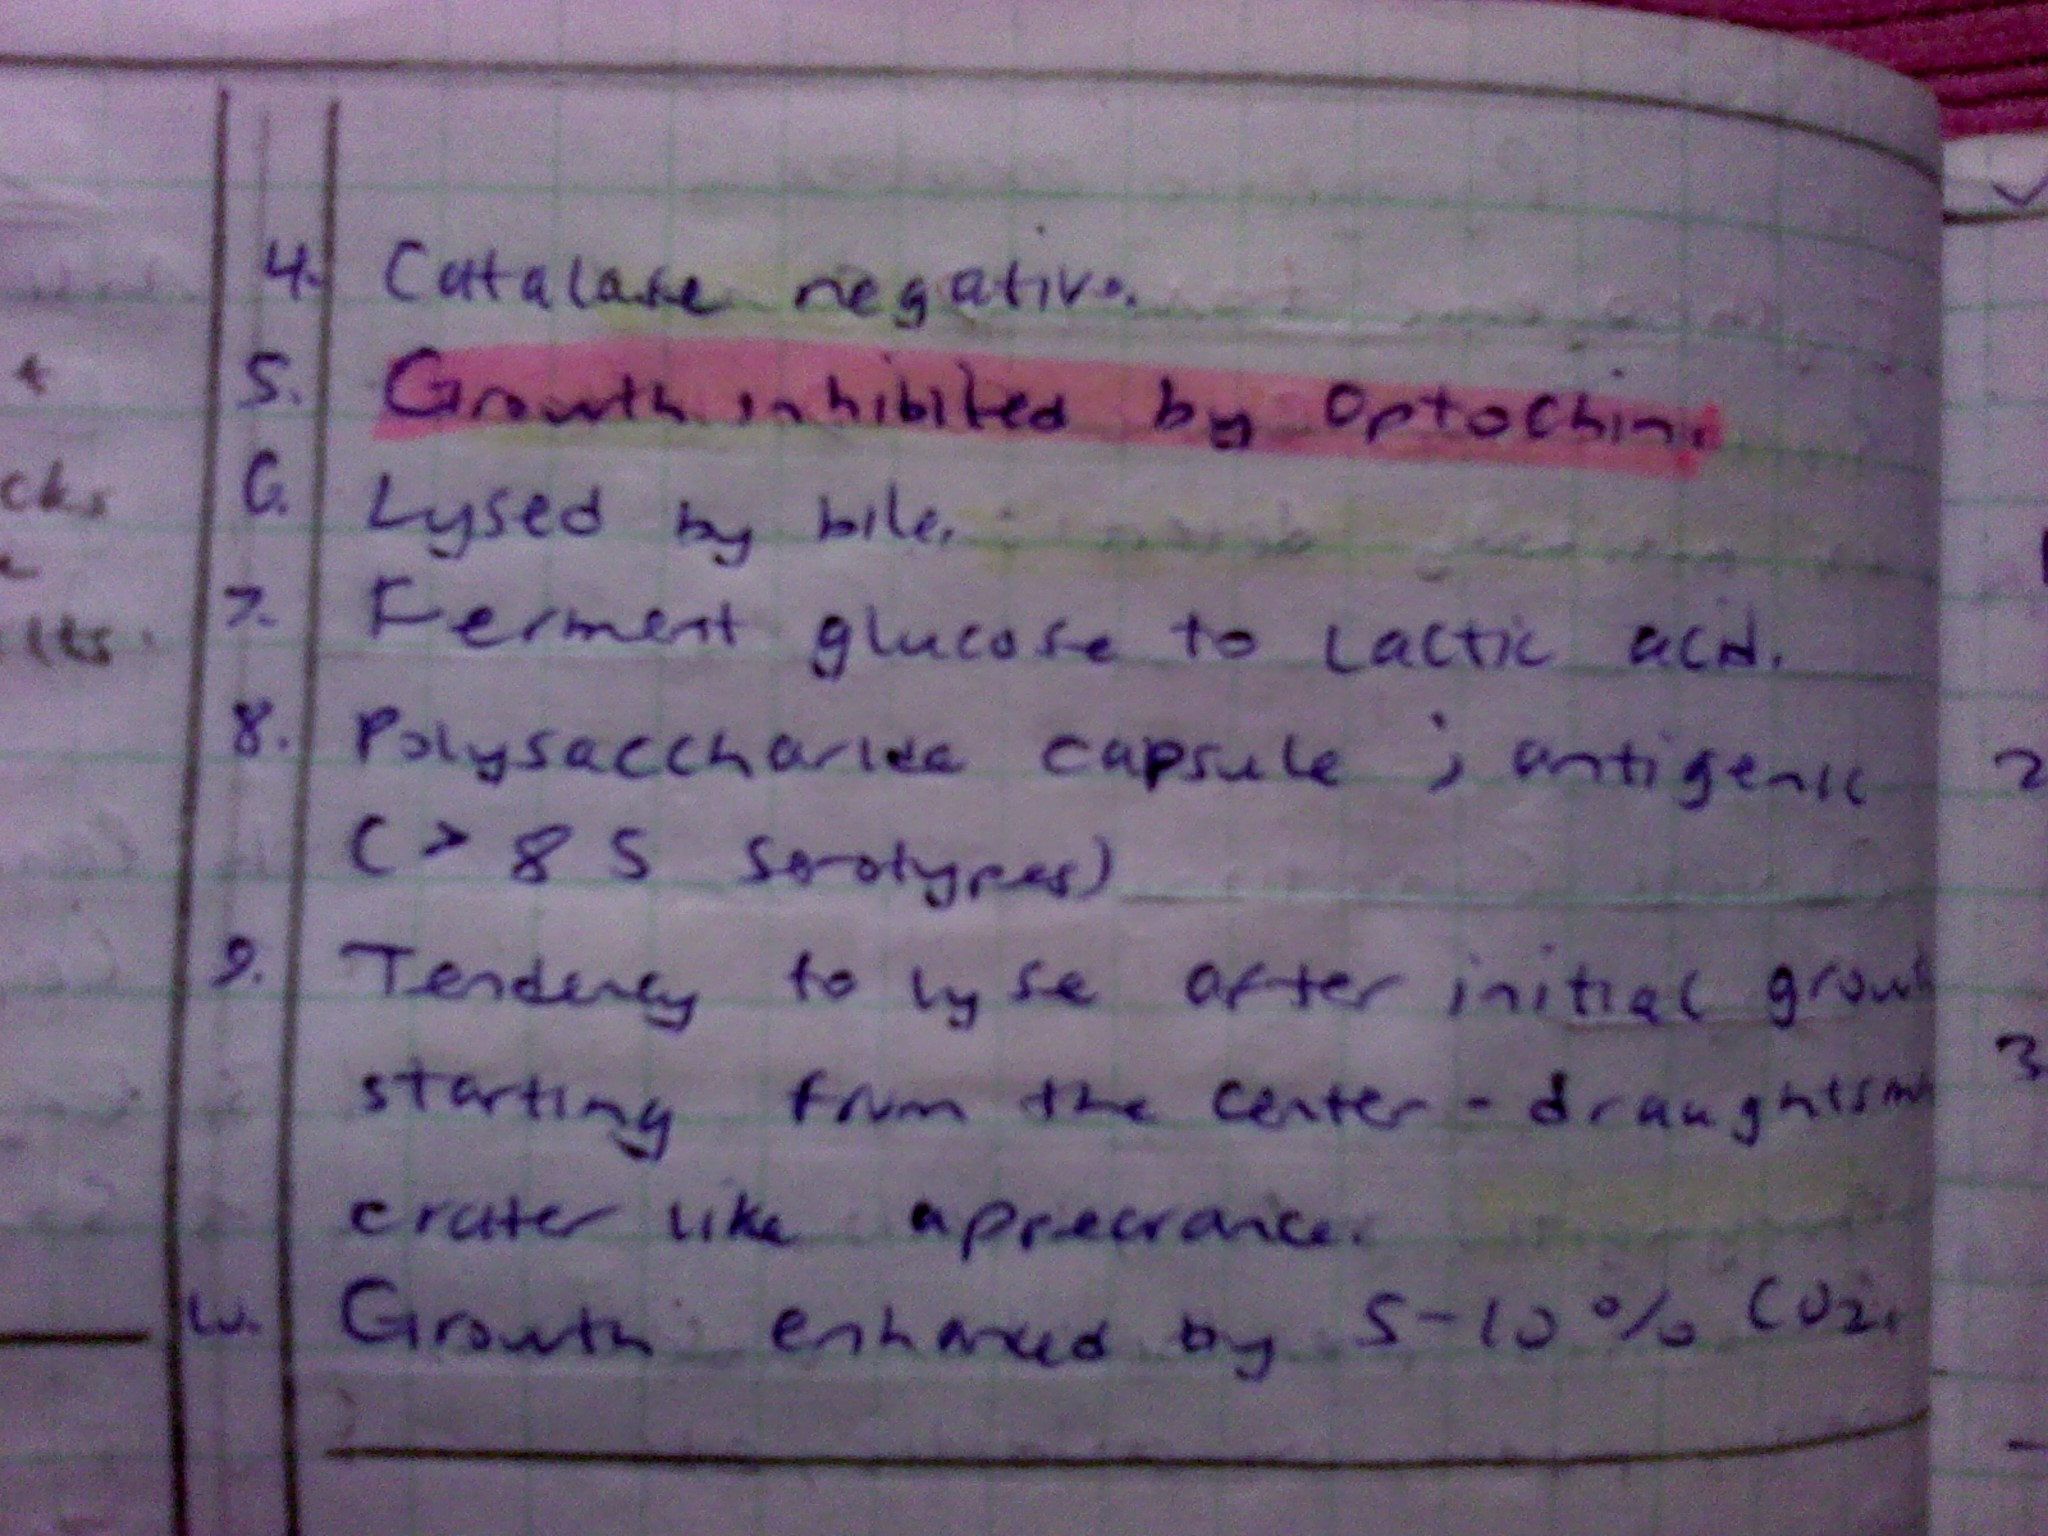 4. Catalase negative.
5. Growth inhibited by Optochin.
6. Lysed by bile.
7. Ferment glucose to Lactic acid.
8. Polysaccharide capsule ; antigenic
(> 85 serotypes)
9. Tendency to lyse after initial growth
starting from the center - draughtsm
crater like apprearance.
10. Growth enhanced by 5-10% CO2.
cks
lts.
2
3